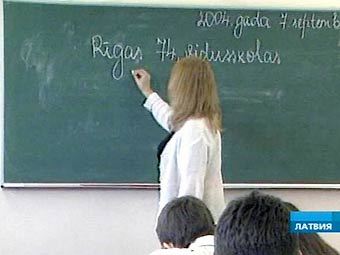 2004. gada 7. septemb
Rīgas 74. vidusskolas
ЛАТВИЯ